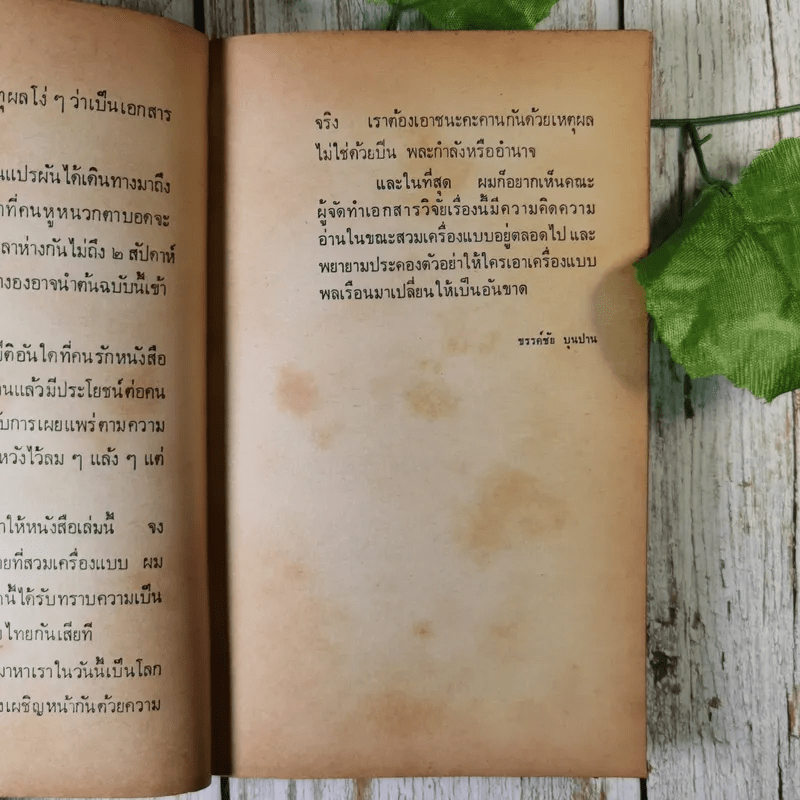 ผลโง่ ๆ ว่าเป็นเอกสาร
แปรผันได้เดินทางมาถึง
ที่คนหูหนวกตาบอดจะ
ห่างกันไม่ถึง ๒ สัปดาห์
อาจนำต้นฉบับนี้เข้า
อันใดที่คนรักหนังสือ
แล้วมีประโยชน์ต่อคน
การเผยแพร่ตามความ
หวังไว้ลม ๆ แล้ง ๆ แต่
ให้หนังสือเล่มนี้ จง
ที่สวมเครื่องแบบ ผม
นี้ได้รับทราบความเป็น
ไทยกันเสียที
มาหาเราในวันนี้เป็นโลก
เผชิญหน้ากันด้วยความ
จริง เราต้องเอาชนะคะคานกันด้วยเหตุผล
ไม่ใช่ด้วยปืน พละกำลังหรืออำนาจ
และในที่สุด ผมก็อยากเห็นคณะ
ผู้จัดทำเอกสารวิจัยเรื่องนี้มีความคิดความ
อ่านในขณะสวมเครื่องแบบอยู่ตลอดไป และ
พยายามประคองตัวอย่าให้ใครเอาเครื่องแบบ
พลเรือนมาเปลี่ยนให้เป็นอันขาด
ขรรค์ชัย บุนปาน